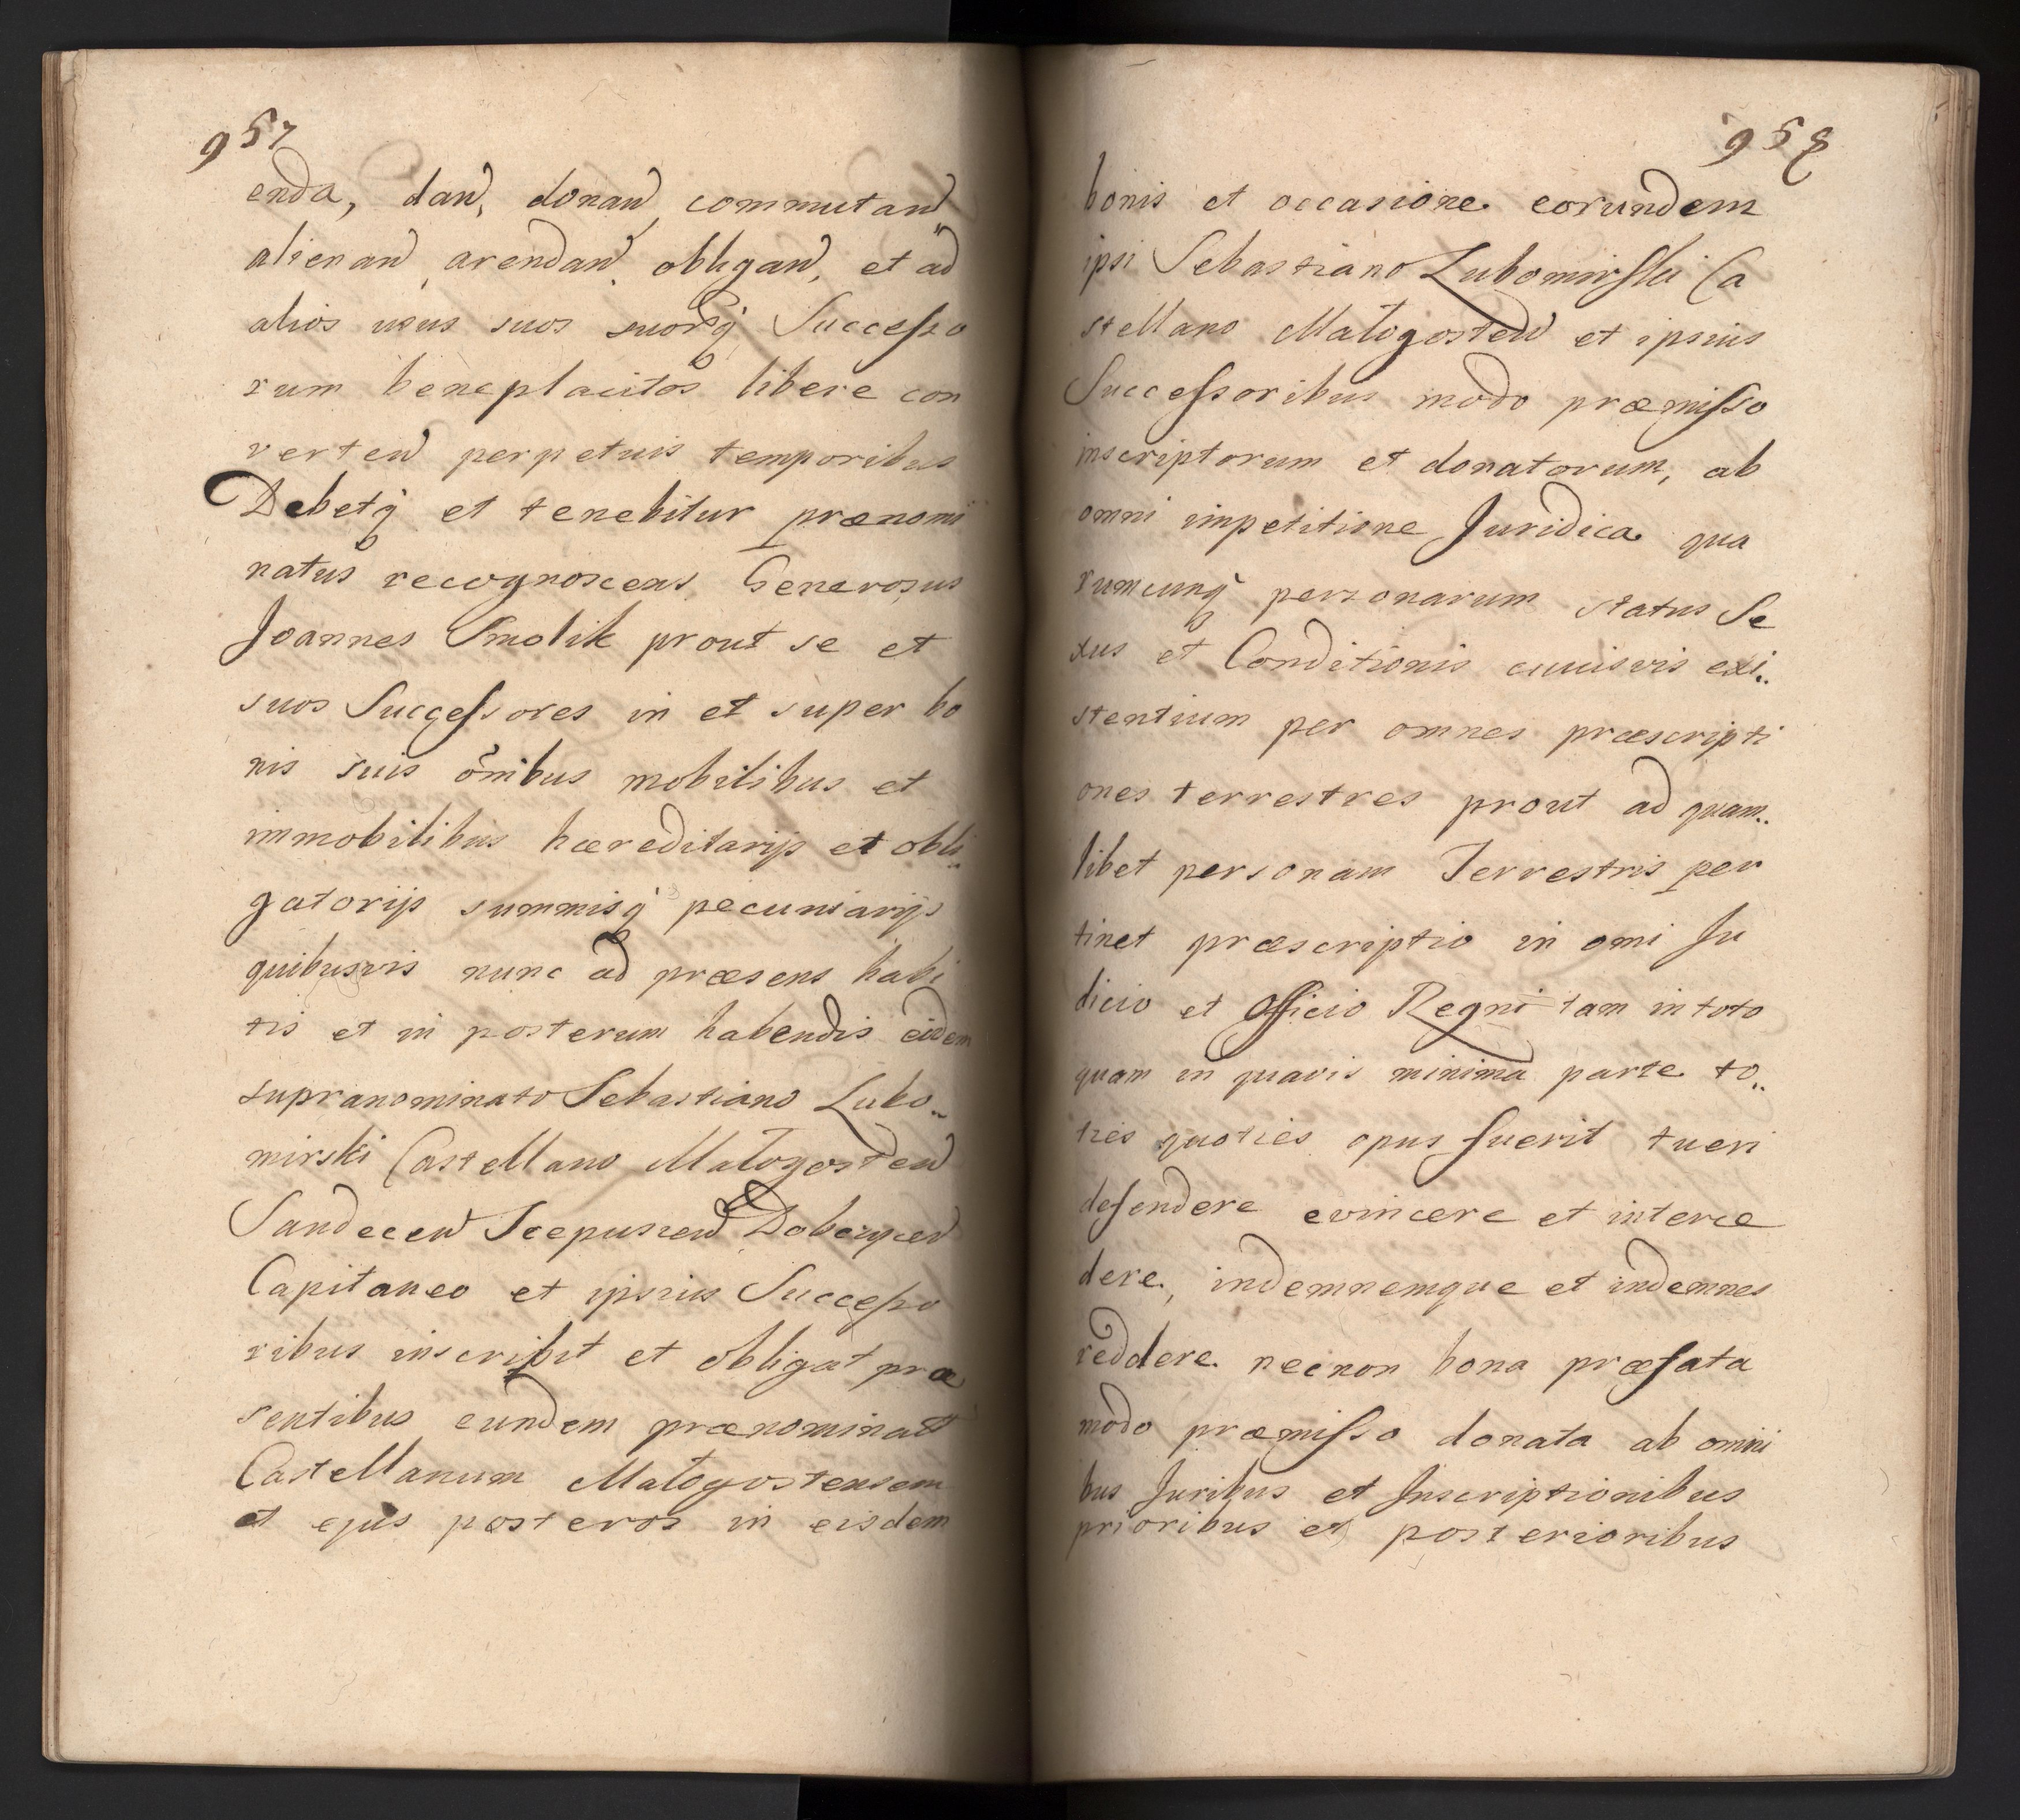 957
enda, dan, donan, commutan,
alienan, arendan, obligan, et ad
alios usus suos suorq Successo
rum beneplacitos libere con
verten perpetuis temporibus
Debetq et tenebitur prænomi
natus recognoscens, Generosus
Joannes Smolik prout se et
suos Successores in et super bo
nis suis õnibus mobilibus et
immobilibus hæreditarijs et obli
gatorijs summisq pecuniarijs
quibusvis nunc ad præsens habi
tis et in posterum habendis eidem
supranominato Sebastiano Lubo
mirski Castellano Małogosten
Sandecen Scepusien Dobczycen
Capitaneo et ipsius Successo
ribus inscribit et obligat præ
sentibus eundem prænominat
Castellanum Małogostensem
et ejus posteros in eisdem
958
bonis et occasione eorundem
ipsi Sebastiano Lubomirski Ca
stellano Małogosten et ipsius
Successoribus modo præmisso
inscriptorum et donatorum, ab
omni impetitione Juridica qua
rumcunq personarum status Se
xus et Conditionis cuiusvis exi
stentium per omnes præscripti
ones terrestres prout ad quam
libet personam Terrestris per
tinet præscriptio in omi Ju
dicio et Officio Regni tam in toto
quam in quavis minima parte to
ties quoties opus fuerit tueri
defendere evincere et interce
dere, indemnemque et indemnes
reddere necnon bona præfata
modo præmisso donata ab omni
bus Juribus et Inscriptionibus
prioribus et posterioribus